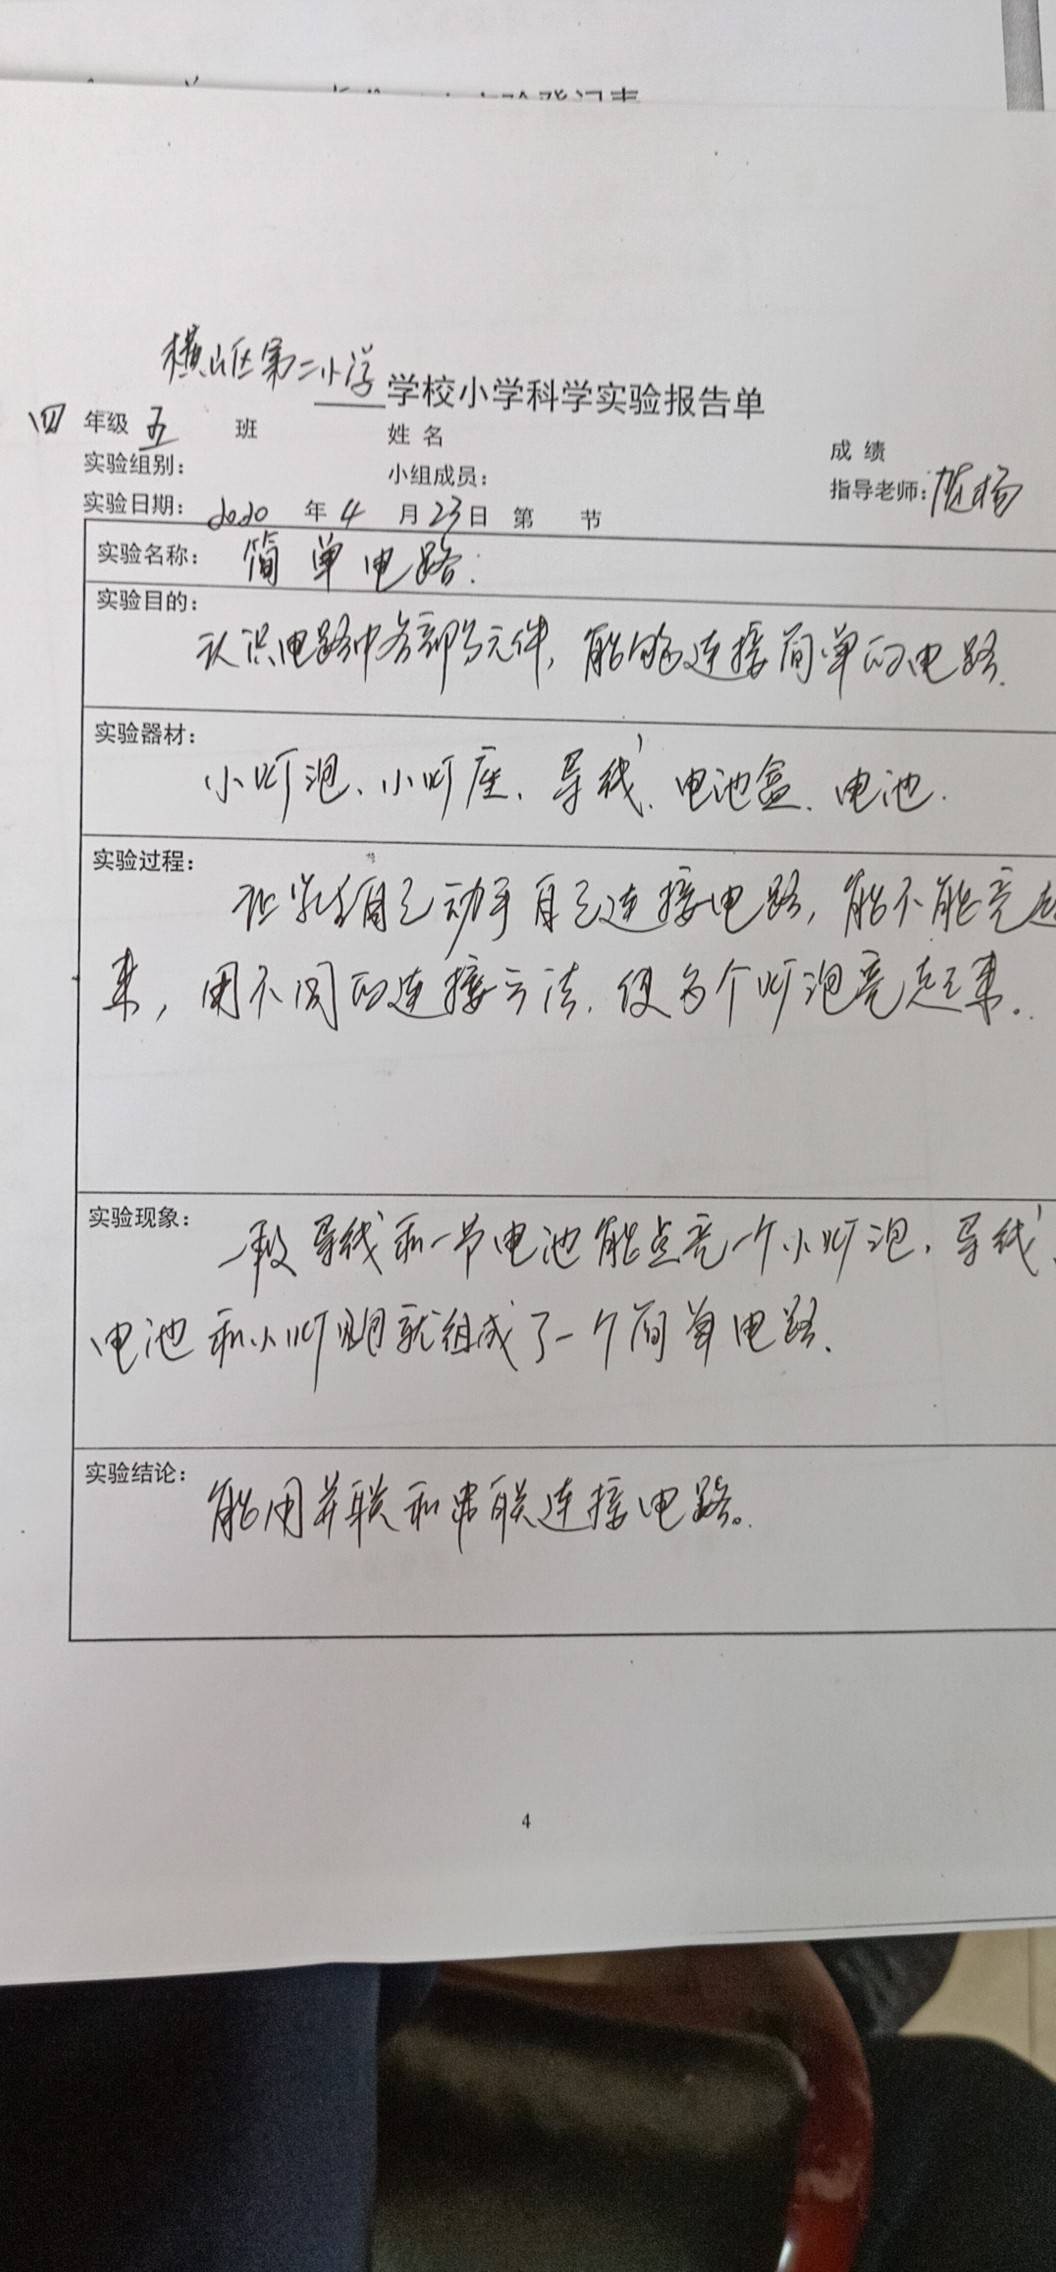 横山区第二小学学校小学科学实验报告单
四年级五班 姓名 成绩
实验组别： 小组成员： 指导老师：杨
实验日期：2020年4月23日 第 节
实验名称：简单电路.
实验目的：
认识电路中各部分元件，能够连接简单的电路.
实验器材：
小灯泡、小灯座、导线、电池盒、电池.
实验过程：
让学生自己动手自己连接电路，能不能亮起
来，用不同的连接方法，使多个灯泡亮起来。
实验现象：
一段导线和一节电池能点亮一个小灯泡，导线、
电池和小灯泡就组成了一个简单电路.
实验结论：
能用并联和串联连接电路。
4